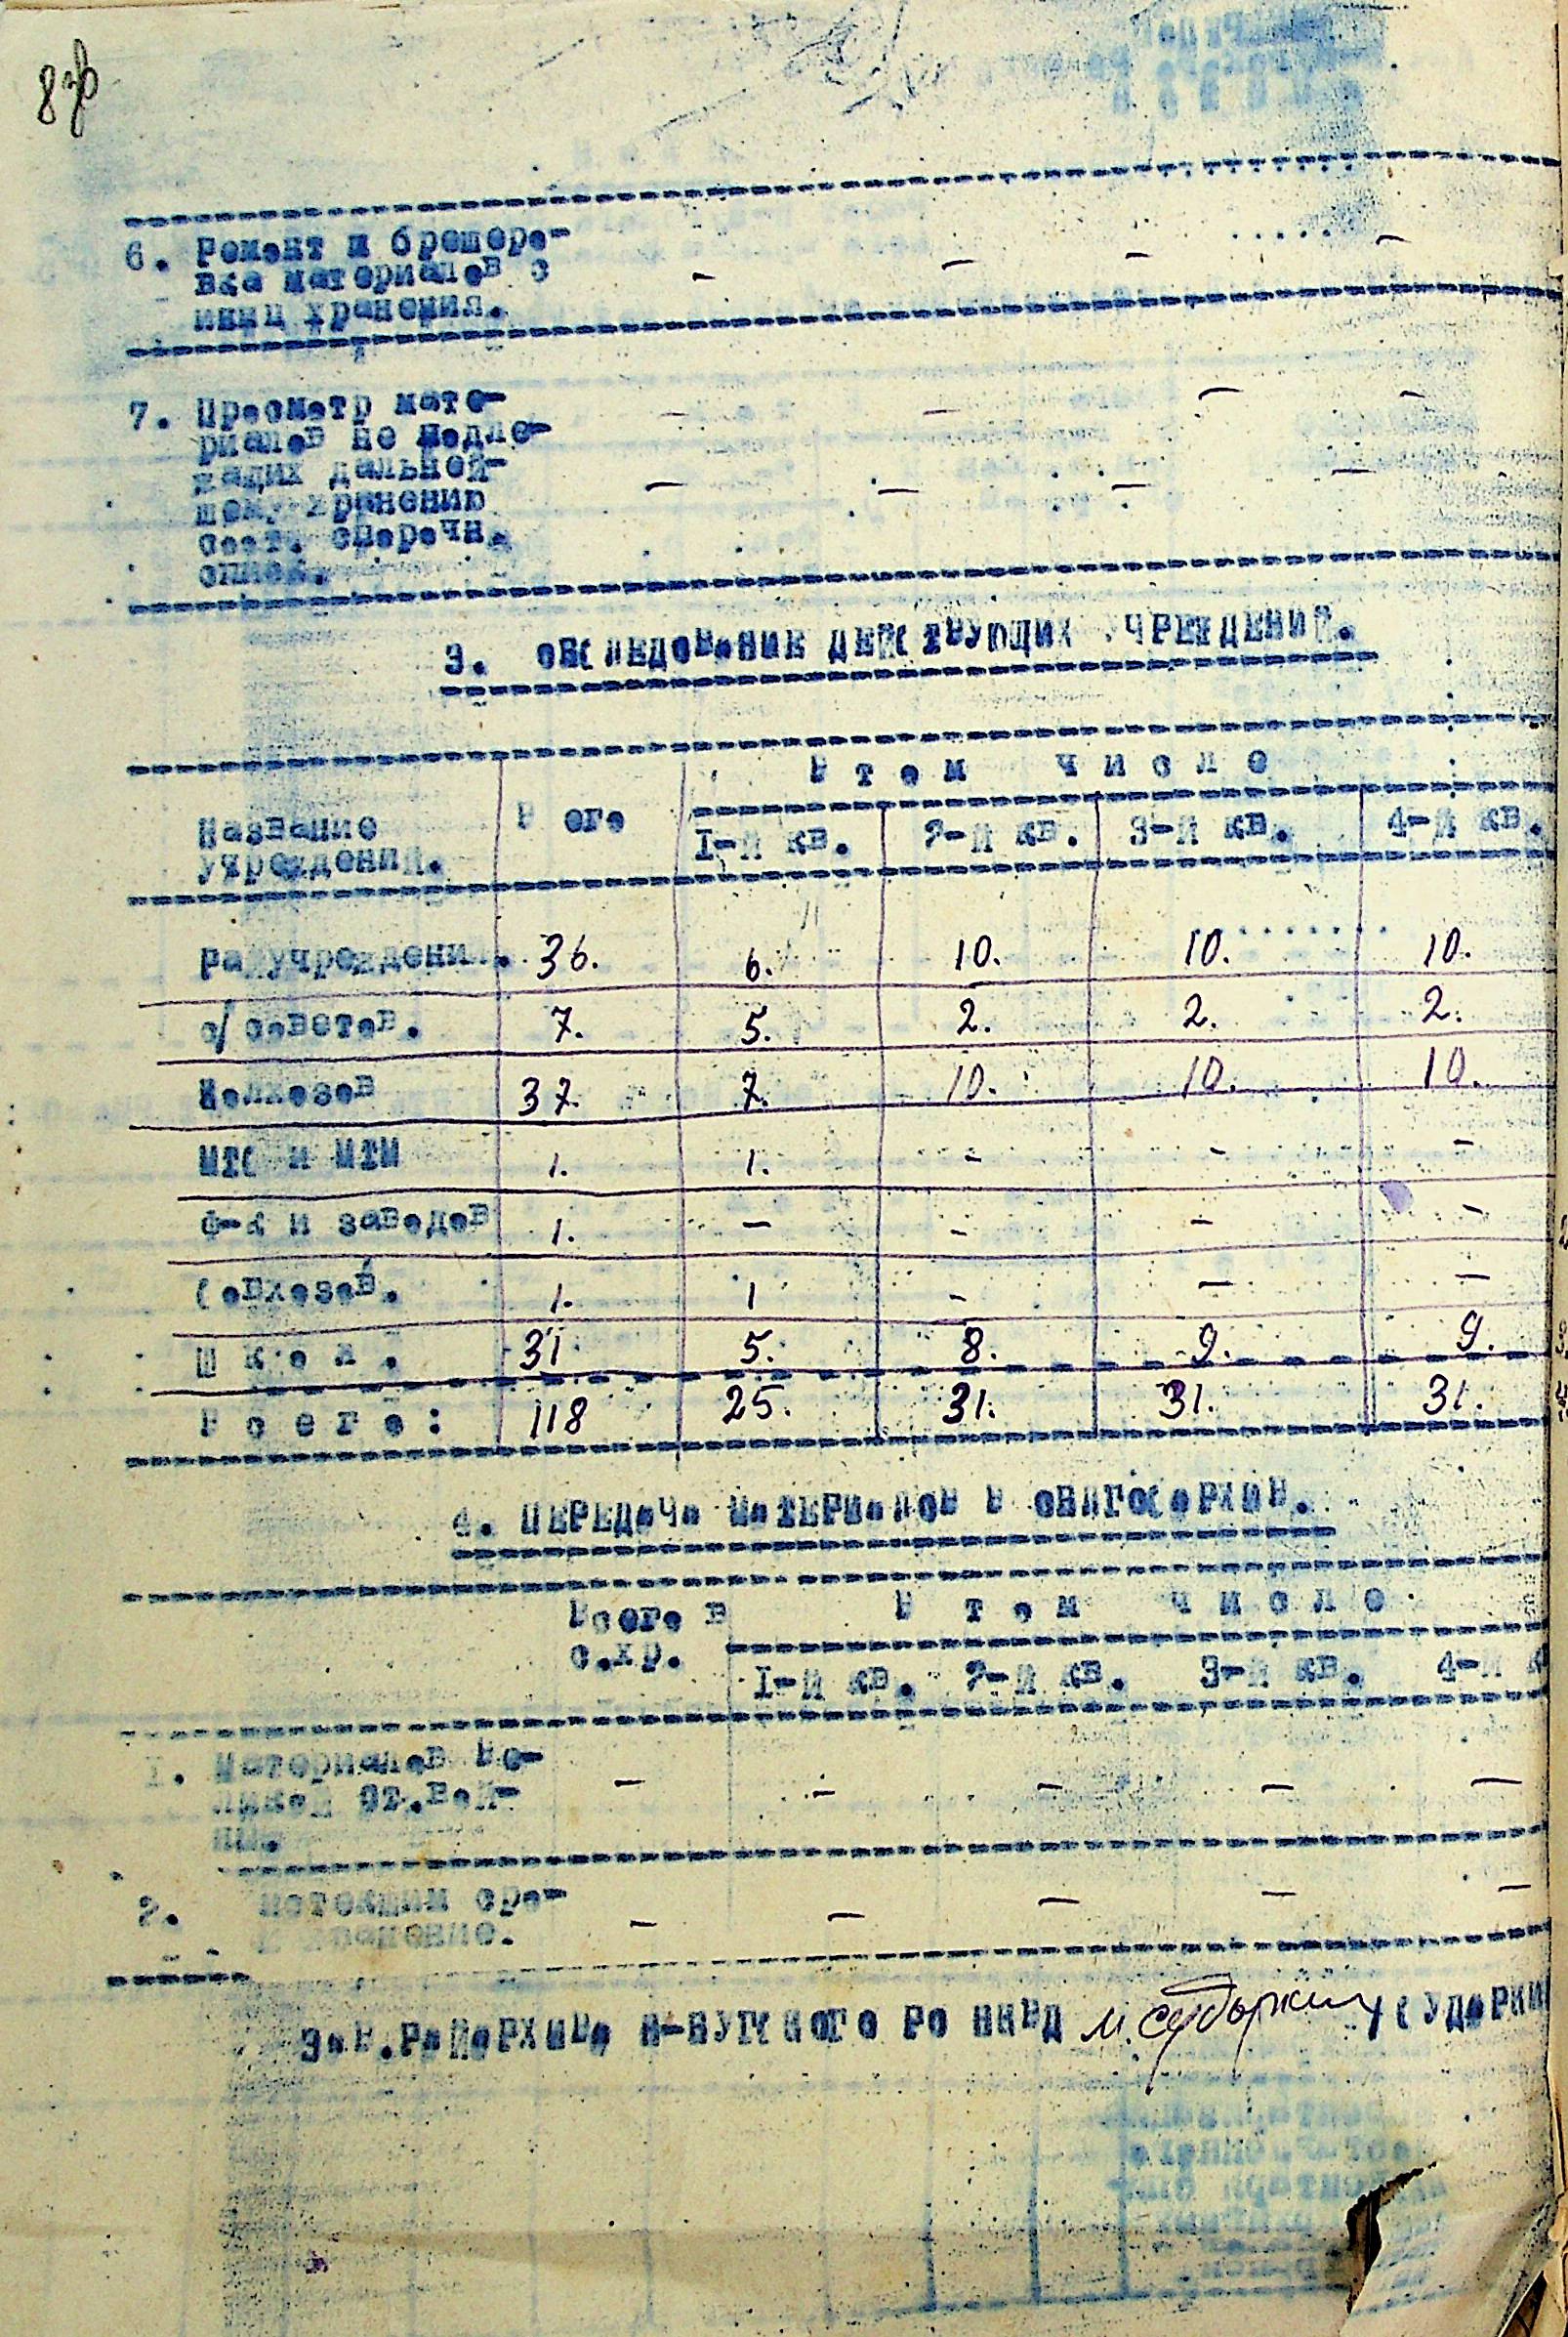 8об
6. Ремонт и брошюро-
вка материалов з
инец хранения. - - - -
7. Просмотр мате- - - - -
риалов не подле-
жащих дальней-
шему хранению - - - -
сост. сперечн.
описей.
3. ОБСЛЕДОВАНИЕ ДЕЙСТВУЮЩИХ УЧРЕЖДЕНИЙ.
В том числе
Название Всего 1-й кв. 2-й кв. 3-й кв. 4-й кв.
учреждений.
Райучреждений. 36. 6. 10. 10. 10.
с/советов. 7. 5. 2. 2. 2.
Колхозов 37. 7. 10. 10. 10.
МТС и МТМ 1. 1. - - -
Ф-к и заводов 1. - - - -
Совхозов. 1. 1 - - -
Школ. 31 5. 8. 9. 9.
Всего: 118 25. 31. 31. 31.
4. ПЕРЕДАЧА МАТЕРИАЛОВ В ОБЛГОСАРХИВ.
Всего в В том числе
с.хр. 1-й кв. 2-й кв. 3-й кв. 4-й к
1. Материалов Ве- - - - - -
ликой От.вой-
ны.
2. истекшим сро- - - - - -
хранение.
Зав.РайАРХИВА Н-БУГСКОГО РО НКВД М.Сударкин /СУДАРКИ